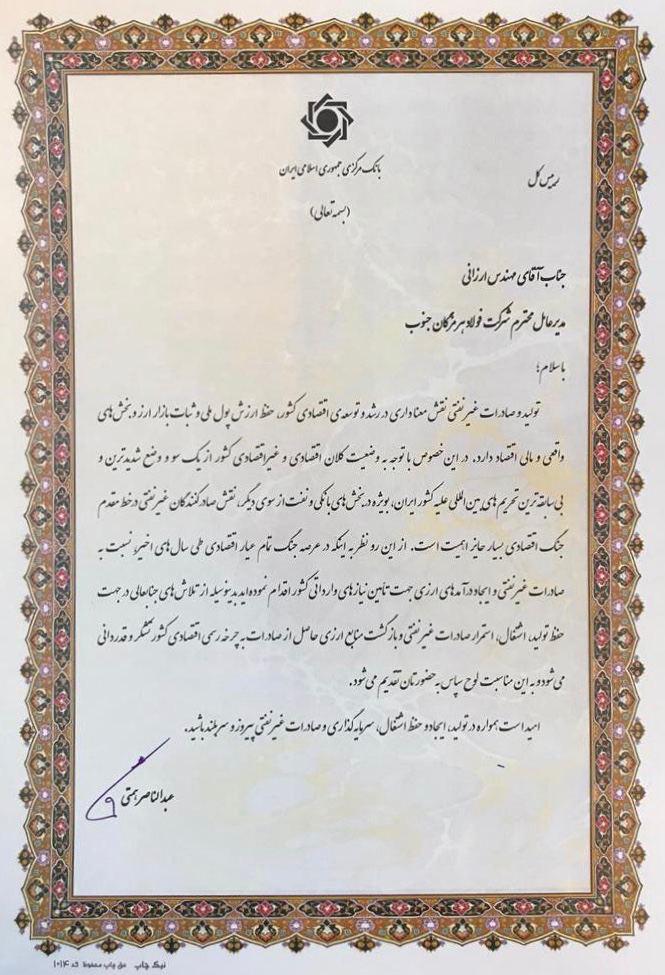 بانک مرکزی جمهوری اسلامی ایران
رئیس کل
(بسمه تعالی)
جناب آقای مهندس ارزانی
مدیرعامل محترم شرکت فولاد هرمزگان جنوب
باسلام؛
تولید و صادرات غیرنفتی نقش معناداری در رشد و توسعه‌ی اقتصادی کشور، حفظ ارزش پول ملی و ثبات بازار ارز و بخش‌های
واقعی و مالی اقتصاد دارد. در این خصوص با توجه به وضعیت کلان اقتصادی و غیراقتصادی کشور از یک سو و وضع شدیدترین و
بی‌سابقه‌ترین تحریم‌های بین‌المللی علیه کشور ایران، بویژه در بخش‌های بانکی و نفت از سوی دیگر، نقش صادرکنندگان غیرنفتی در خط مقدم
جنگ اقتصادی بسیار حائز اهمیت است. از این رو نظر به اینکه در عرصه جنگ تمام عیار اقتصادی طی سال‌های اخیر، نسبت به
صادرات غیرنفتی و ایجاد درآمدهای ارزی جهت تأمین نیازهای وارداتی کشور اقدام نموده‌اید بدینوسیله از تلاش‌های جنابعالی در جهت
حفظ تولید، اشتغال، استمرار صادرات غیرنفتی و بازگشت منابع ارزی حاصل از صادرات به چرخه رسمی اقتصادی کشور تشکر و قدردانی
می‌شود و به این مناسبت لوح سپاس به حضورتان تقدیم می‌شود.
امید است همواره در تولید، ایجاد و حفظ اشتغال، سرمایه‌گذاری و صادرات غیرنفتی پیروز و سربلند باشید.
عبدالناصر همتی
نیک چاپ حق چاپ محفوظ کد ۱۰۱۴